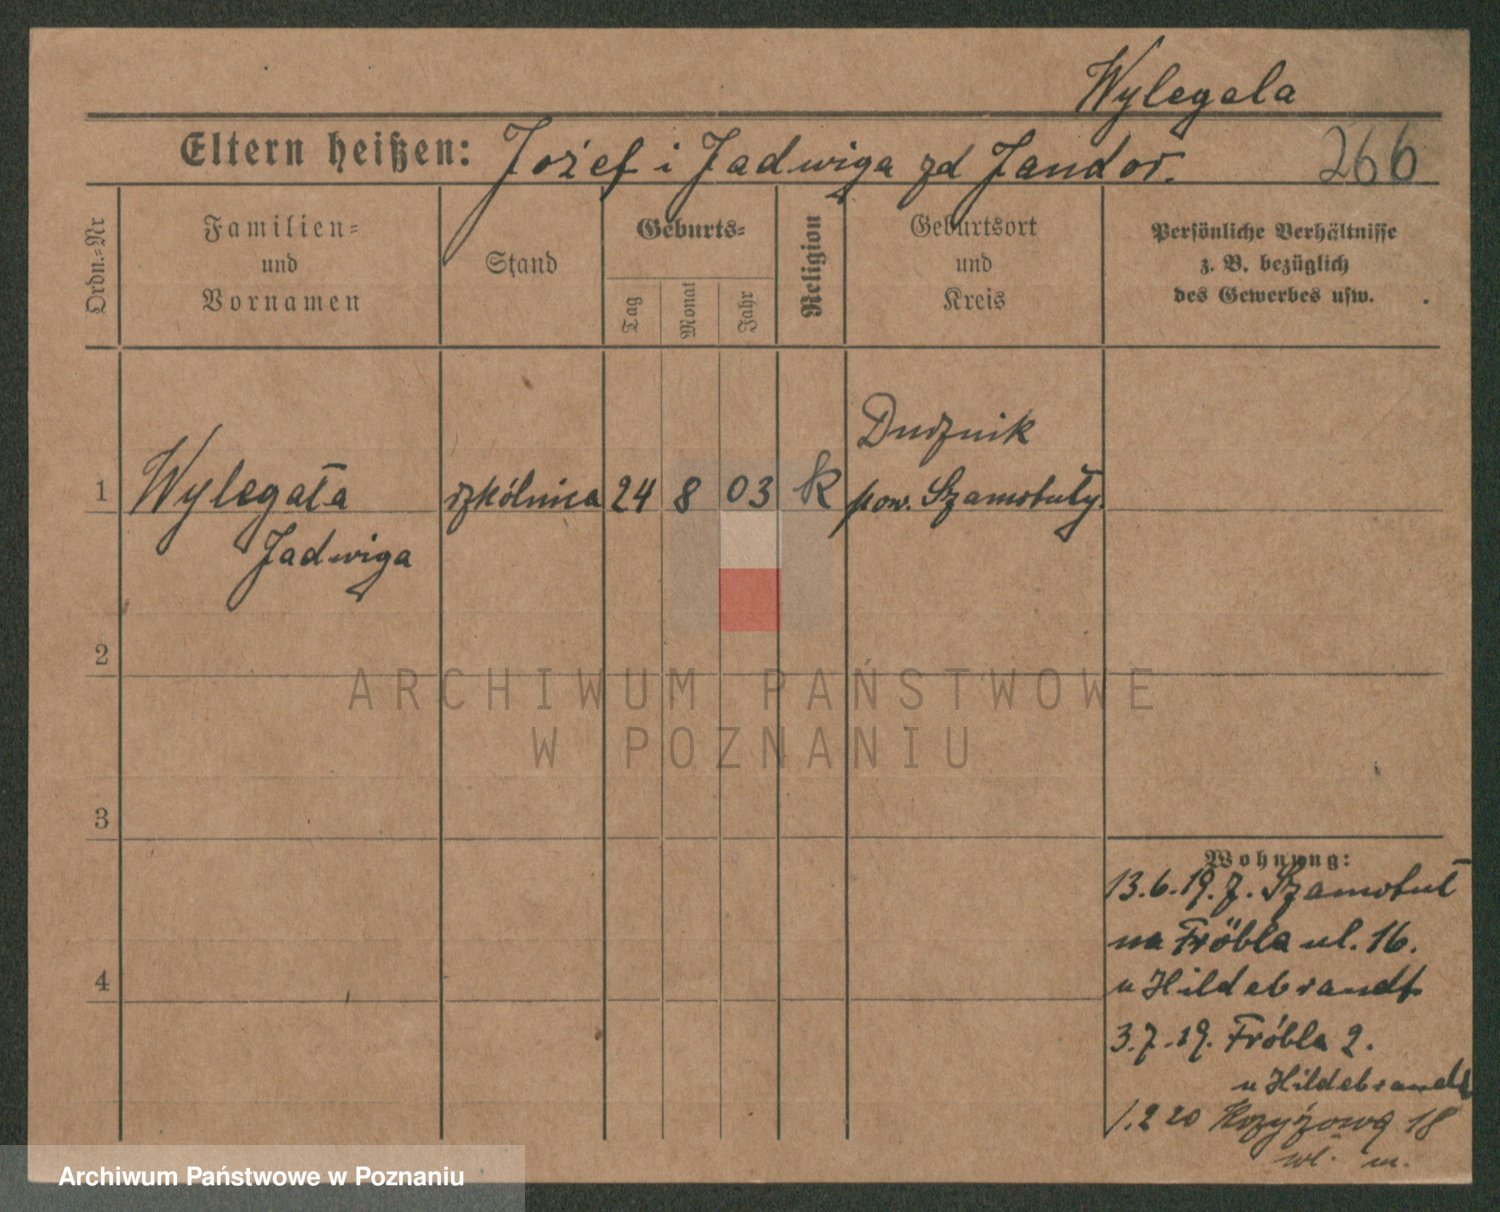 Wylegala
Eltern heißen: Józef i Jadwiga zd Jandor.
266
Ordn.-Nr
Familien-
und
Vornamen
Stand
Geburts-
Tag
Monat
Jahr
Religion
Geburtsort
und
Kreis
Persönliche Verhältnisse
z. B. bezüglich
des Gewerbes usw.
1
Wylegała
Jadwiga
szkólnica
24
8
03
k
Dusznik
pow. Szamotuły.
2
3
4
ARCHIWUM PAŃSTWOWE
W POZNANIU
Wohnung:
13.6.19. z. Szamotuł
na Fröbla ul. 16.
u Hildebrandt
3.7.19. Fröbla 2.
u Hildebrandt
1.2 20 18
wł. m.
Archiwum Państwowe w Poznaniu